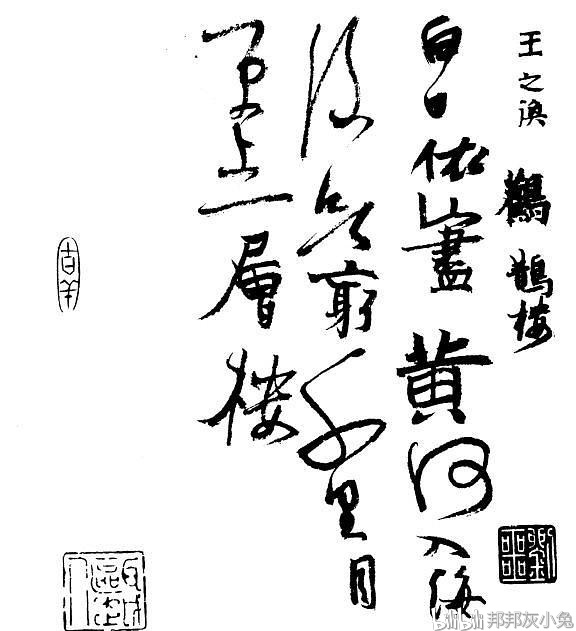 王之渙
鸛鵲樓
白日依山盡黃河入海
流欲窮千里目
更上一層樓
吉羊
bilibili 邦邦灰小兔